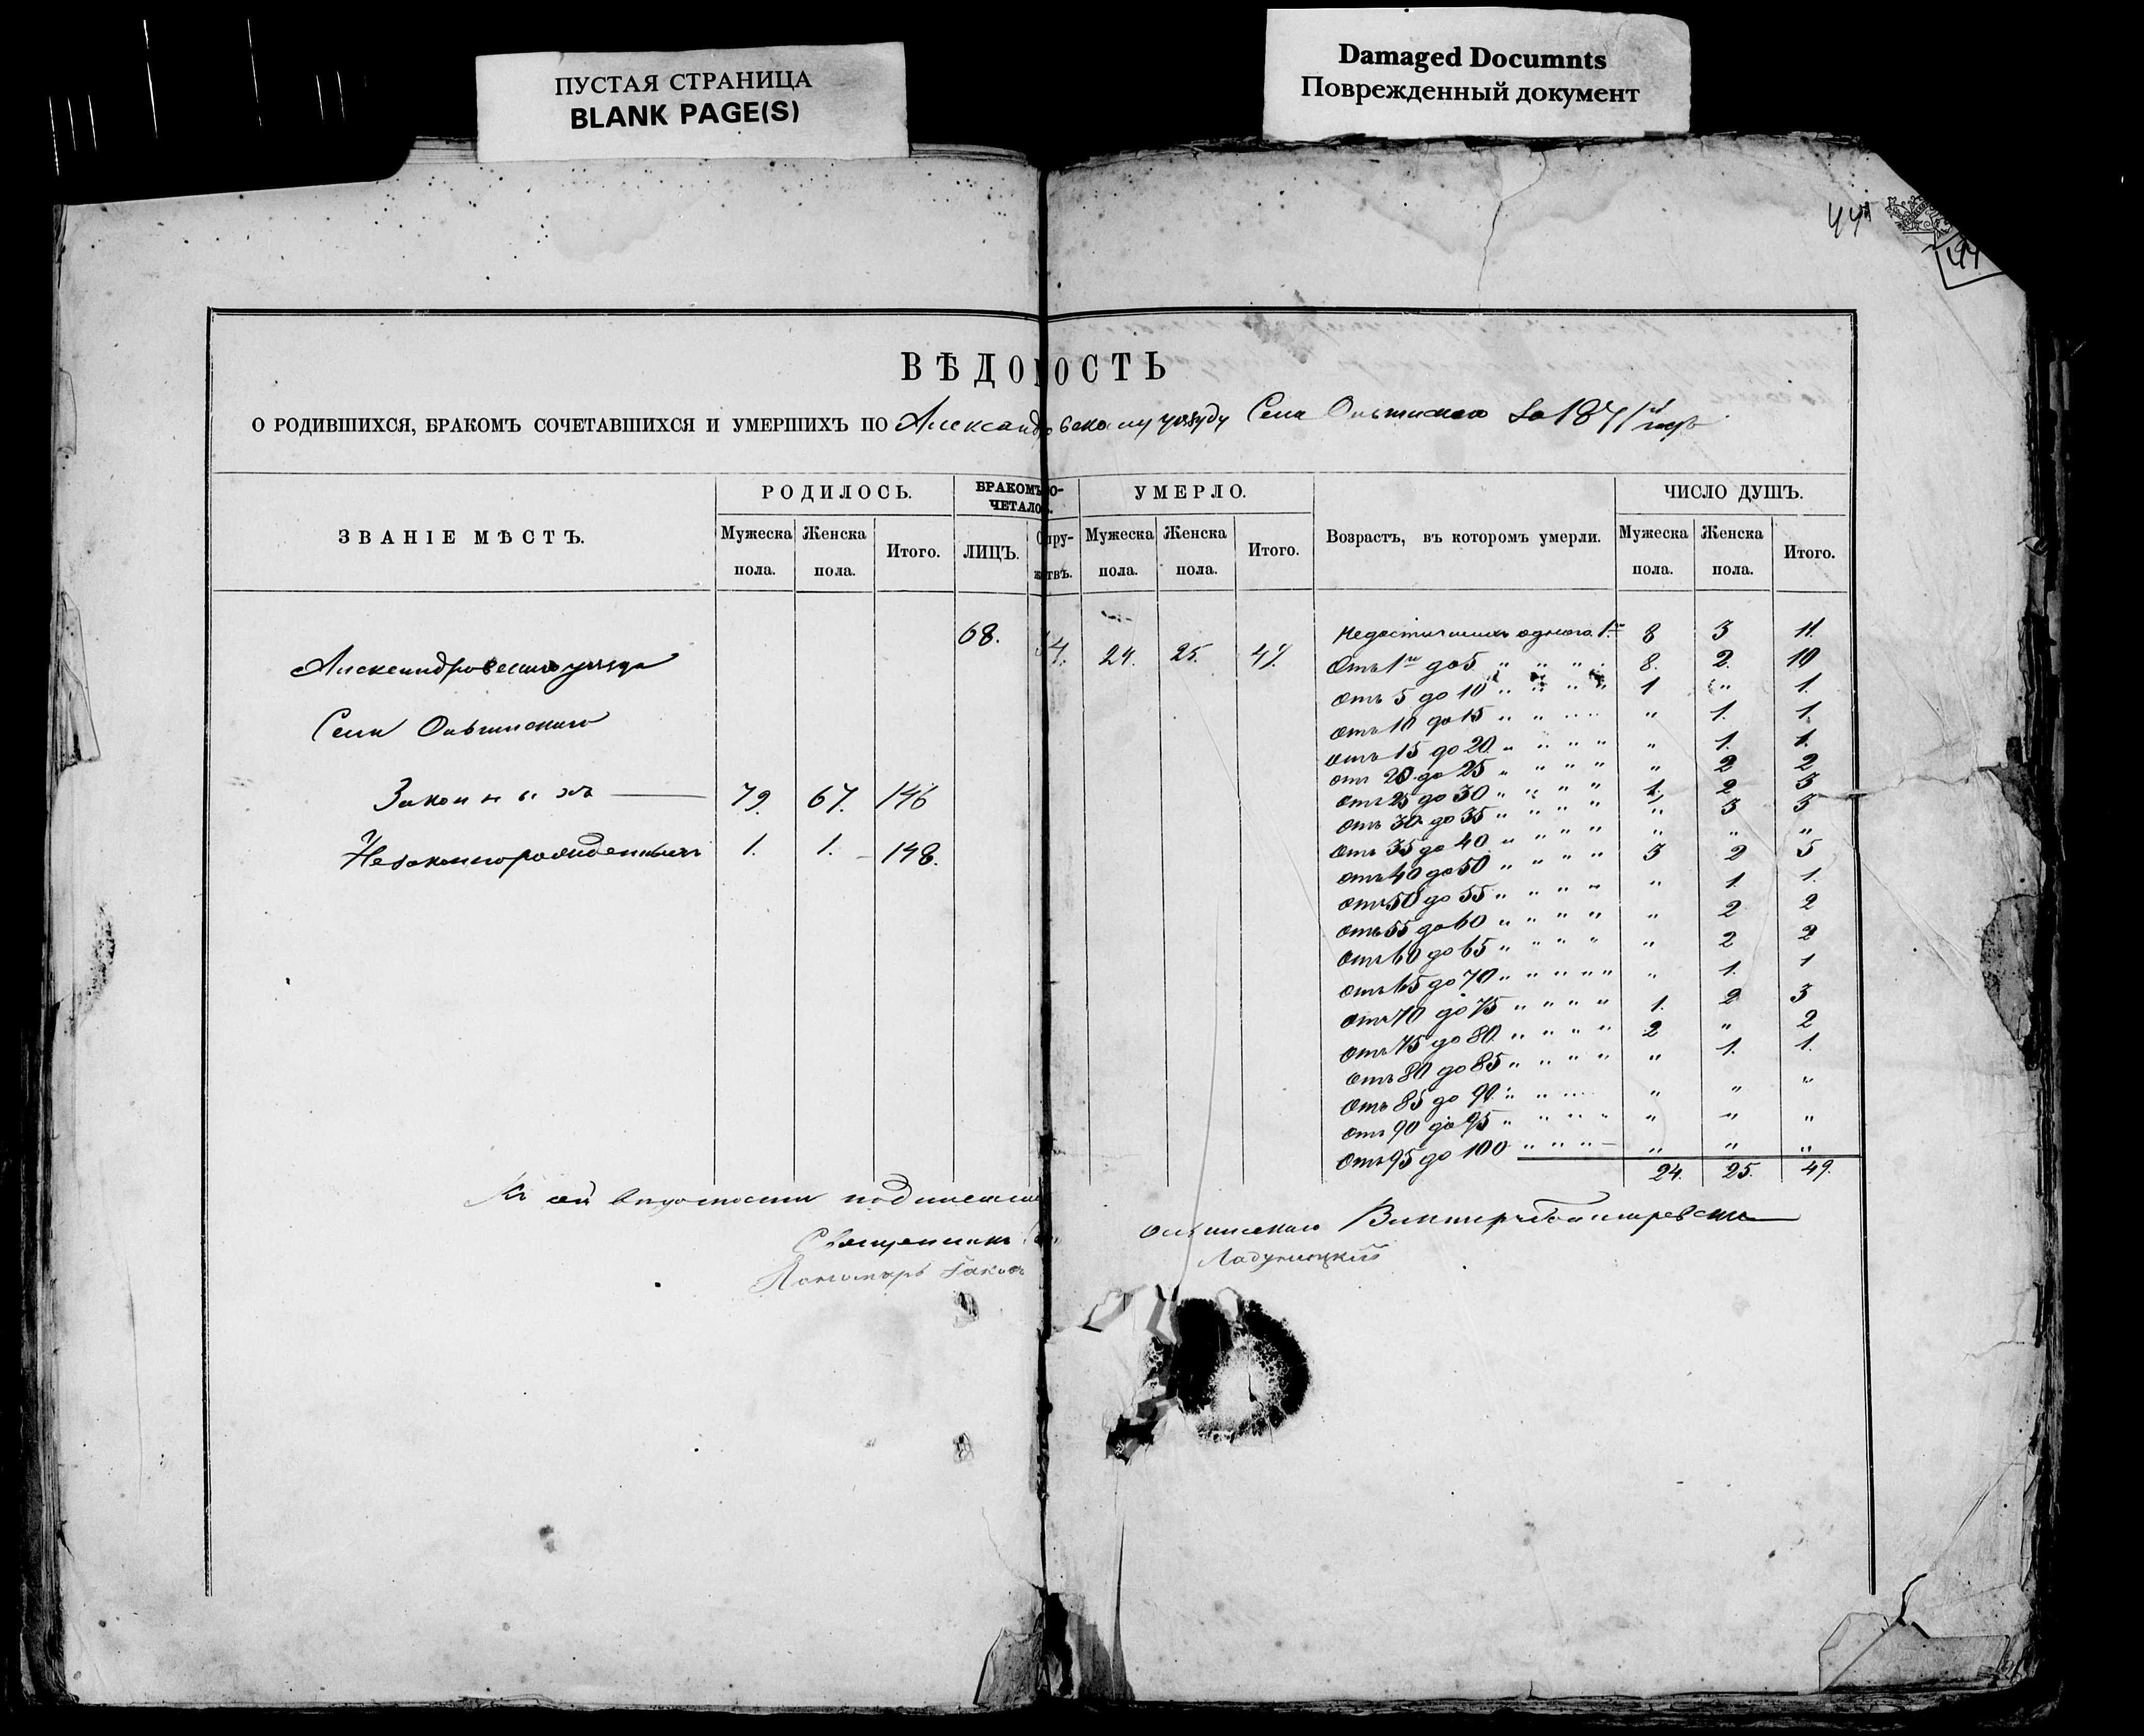 ПУСТАЯ СТРАНИЦА
BLANK PAGE(S)
Damaged Documnts
Поврежденный документ
44
ВѢДОМОСТЬ
О РОДИВШИХСЯ, БРАКОМЪ СОЧЕТАВШИХСЯ И УМЕРШИХЪ ПО Александровскому уѣзду Села за 1871й годъ
ЗВАНІЕ МѢСТЪ. РОДИЛОСЬ. БРАКОМЪ СО- УМЕРЛО. Возрастъ, въ которомъ умерли. ЧИСЛО ДУШЪ.
ЧЕТАЛОСЬ.
Мужеска Женска Итого. ЛИЦЪ. Супру- Мужеска Женска Итого. Мужеска Женска Итого.
пола. пола. жествъ. пола. пола. пола. пола.
68. 34. 24. 25. 49. Недостигшихъ одного 1го 8 3 11.
Александровскаго уѣзда Отъ 1го до 5 " " " 8. 2. 10
отъ 5 до 10 " " " " 1 " 1.
Села отъ 10 до 15 " " " " " 1. 1.
отъ 15 до 20 " " " " " 1. 1.
отъ 20 до 25 " " " " " 2 2
Законныхъ — 79. 67. 146 отъ 25 до 30 " " " " 1. 2 3
отъ 30 до 35 " " " " " 3 3
Незаконнорожденныхъ 1. 1. – 148. отъ 35 до 40 " " " " " " "
отъ 40 до 50 " " " " 3 2 5
отъ 50 до 55 " " " " " 1. 1.
отъ 55 до 60 " " " " " 2 2
отъ 60 до 65 " " " " " 2 2
отъ 65 до 70 " " " " " " 1. 1
отъ 70 до 75 " " " " 1. 2 3
отъ 75 до 80 " " " " 2 " 2
отъ 80 до 85 " " " " " 1. 1.
отъ 85 до 90 " " " " " "
отъ 90 до 95 " " " " " " " "
отъ 95 до 100 " " " — " " "
24. 25. 49.
Къ сей вѣдомости
Священникъ Викторъ
Пономарь Іаковъ